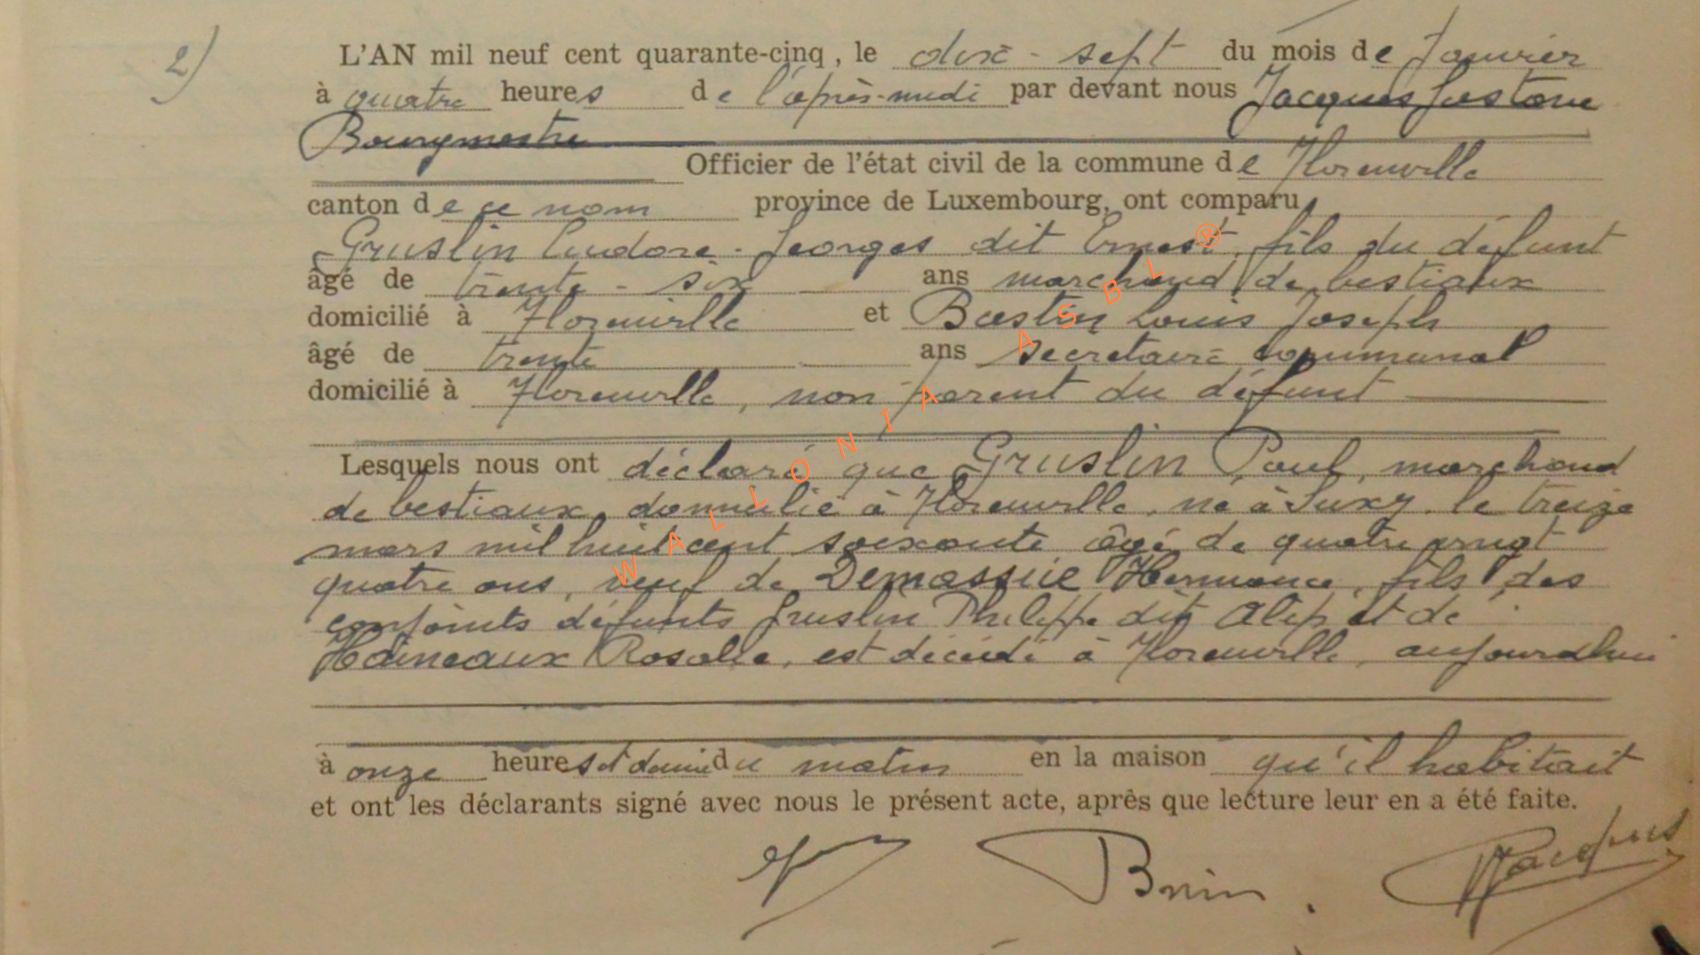 2)
L'AN mil neuf cent quarante-cinq, le dix-sept du mois de Janvier
à quatre heures de l'après-midi par devant nous Jacques Gustave
Bourgmestre
Officier de l'état civil de la commune de Florenville
canton de ce nom province de Luxembourg, ont comparu
Gruslin Eudore-Georges dit Ernest, fils du défunt
âgé de trente-six ans marchand de bestiaux
domicilié à Florenville et Bastin Louis Joseph
âgé de trente ans secrétaire communal
domicilié à Florenville, non parent du défunt
Lesquels nous ont déclaré que Gruslin Paul, marchand
de bestiaux, domicilié à Florenville, né à Suxy, le treize
mars mil huit cent soixante âgé de quatre vingt
quatre ans, veuf de Hermance, fils des
conjoints défunts Gruslin Philippe dit Alip et de
Hameaux Rosalie, est décédé à Florenville, aujourdhui
à onze heures et demie du matin en la maison qu'il habitait
et ont les déclarants signé avec nous le présent acte, après que lecture leur en a été faite.
Jacques
WALLONIA ASBL ®